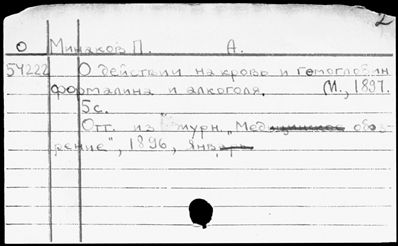 2
О Минаков П. А.
54222 О действии на кровь и гемоглобин
формалина и алкоголя. М., 1897.
5 с.
Отт. из журн. „Медицинское обоз-
рение", 1896, январь